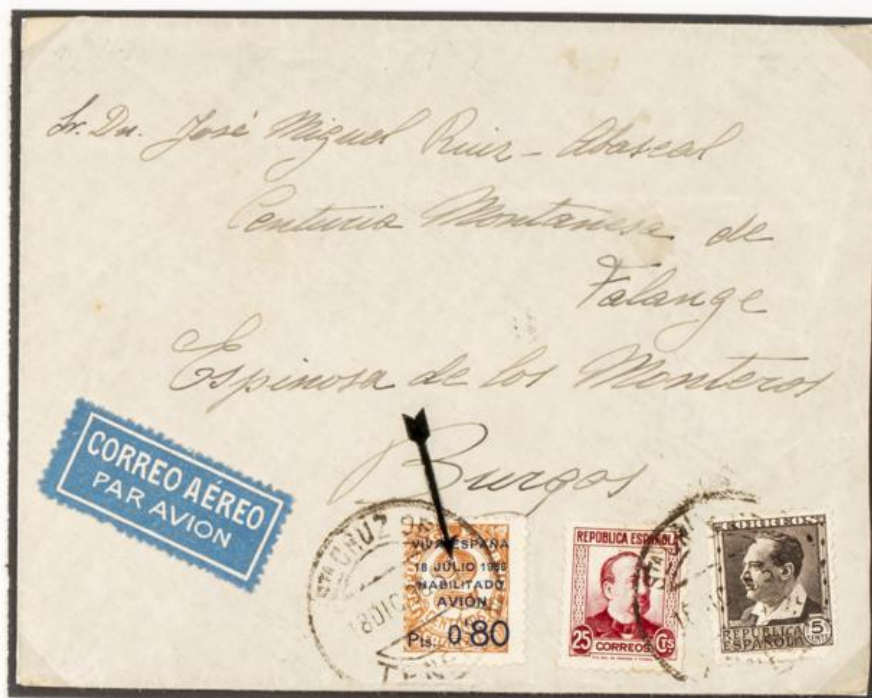 Sr. Dn. José Miguel Ruiz-Abascal
Centuria Montañesa de
Falange
Espinosa de los Monteros
Burgos
CORREO AÉREO
PAR AVION
STA CRUZ DE
TENE
VIVA ESPAÑA
18 JULIO 1936
HABILITADO
AVION
Pts. 0'80
REPÚBLICA ESPAÑOLA
25 CTS
CORREOS
STA
CORREOS
REPUBLICA
ESPAÑOLA
5
CENTS